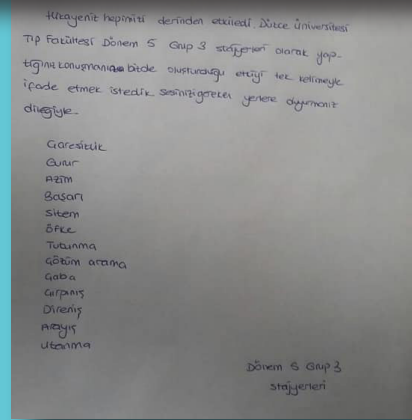 Hikayeniz hepimizi derinden etkiledi. Düzce Üniversitesi
Tıp Fakültesi Dönem 5 Grup 3 stajyerleri olarak yap-
tığınız konuşmanın bizde oluşturduğu etkiyi tek kelimeyle
ifade etmek istedik sesinizi gereken yerlere duyurmanız
dileğiyle.
Çaresizlik
Gurur
Azim
Başarı
Sitem
Öfke
Tutunma
Çözüm arama
Çaba
Çırpınış
Direniş
Arayış
Utanma
Dönem 5 Grup 3
Stajyerleri